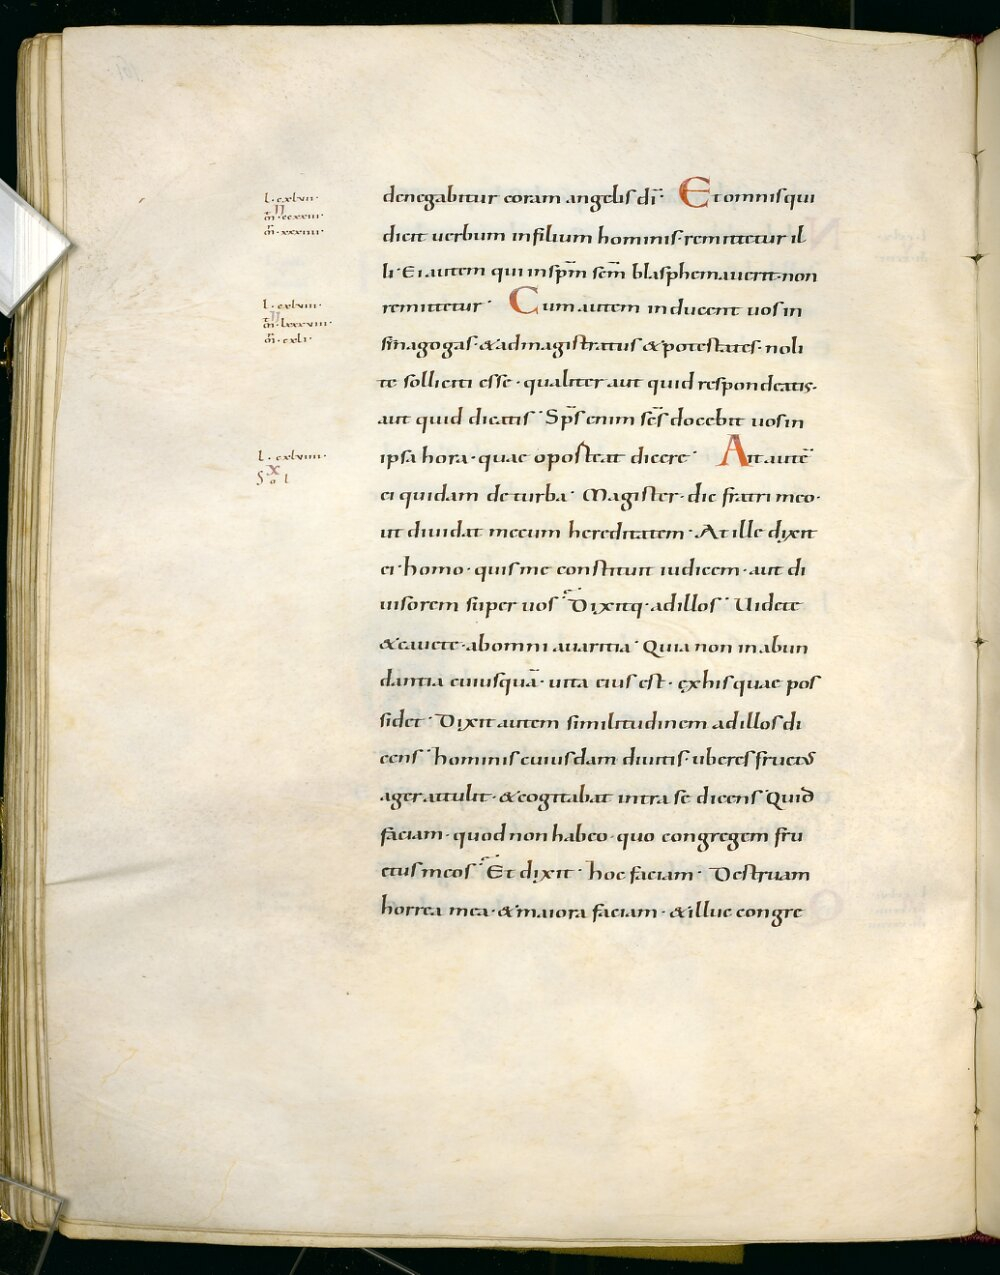 l · cxlvii ·
II
m̄ · ccxxiii ·
m̄ · xxxiiii ·
denegabitur coram angelis dī · Et omnis qui
dicit uerbum in filium hominis · remittetur il
li · Ei autem qui in sp̄m sc̄m blasphemauerit · non
l · cxlviii ·
II
m̄ · lxxxviii ·
m̄ · cxli ·
remittetur · Cum autem inducent uos in
sinagogas · & ad magistratus & potestates · noli
te solliciti esse · qualiter aut quid respondeatis ·
aut quid dicatis · Sp̄s enim sc̄s docebit uos in
l · cxlviiii ·
X
Sol
ipsa hora · quae oposteat dicere · Ait autē
ei quidam de turba · Magister · dic fratri meo ·
ut diuidat mecum hereditatem · At ille dixit
ei · homo · quis me constituit iudicem · aut di
uisorem super uos · Dixitq · ad illos · Uidete
& cauete · ab omni auaritia · Quia non in abun
dantia cuiusquā · uita eius est · ex his quae pos
sidet · Dixit autem similitudinem ad illos di
cens · hominis cuiusdam diuitis · uberes fructus
ager attulit · & cogitabat intra se dicens · Quid
faciam · quod non habeo · quo congregem fru
ctus meos · Et dixit · hoc faciam · Destruam
horrea mea · & maiora faciam · & illuc congre